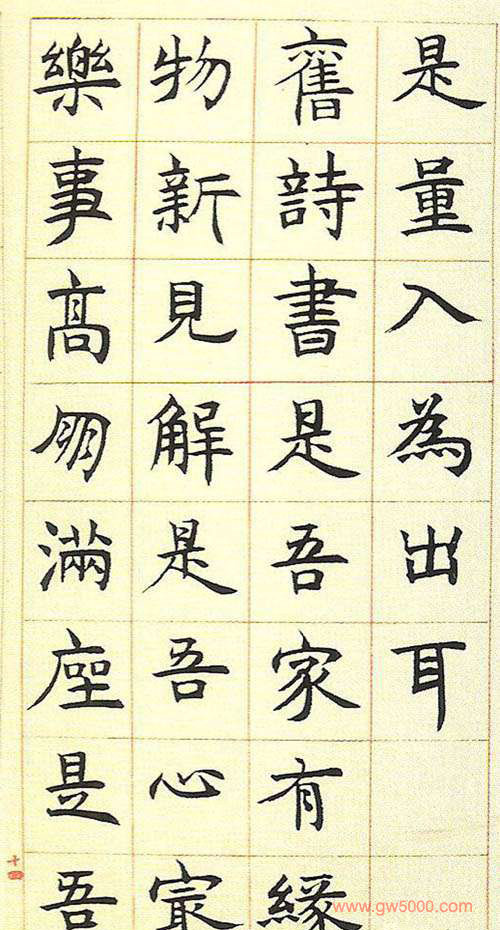 是量入為出耳
舊詩書是吾家有緣
物新見解是吾心寂
樂事高朙滿座是吾
十四
www.gw5000.com